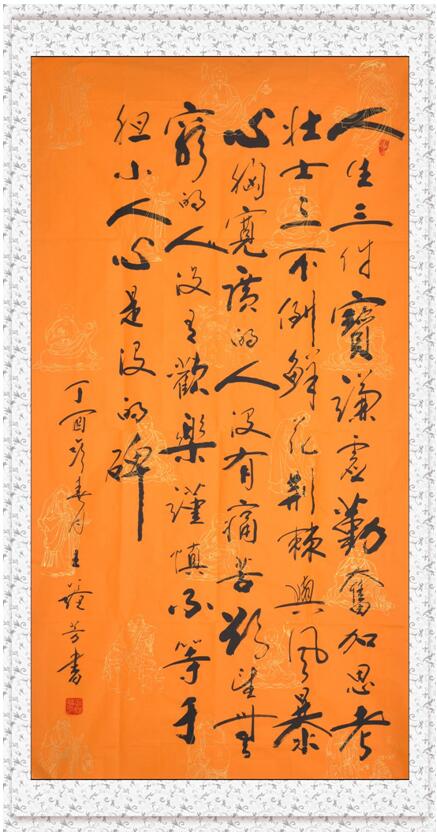 人生三件寶謙虛勤奮加思考
壯士三不倒鮮花荊棘與風暴
心胸寬廣的人没有痛苦欲望無
窮的人没有歡樂謹慎不等于
胆小人心是没的碑
丁酉年春月王芳書